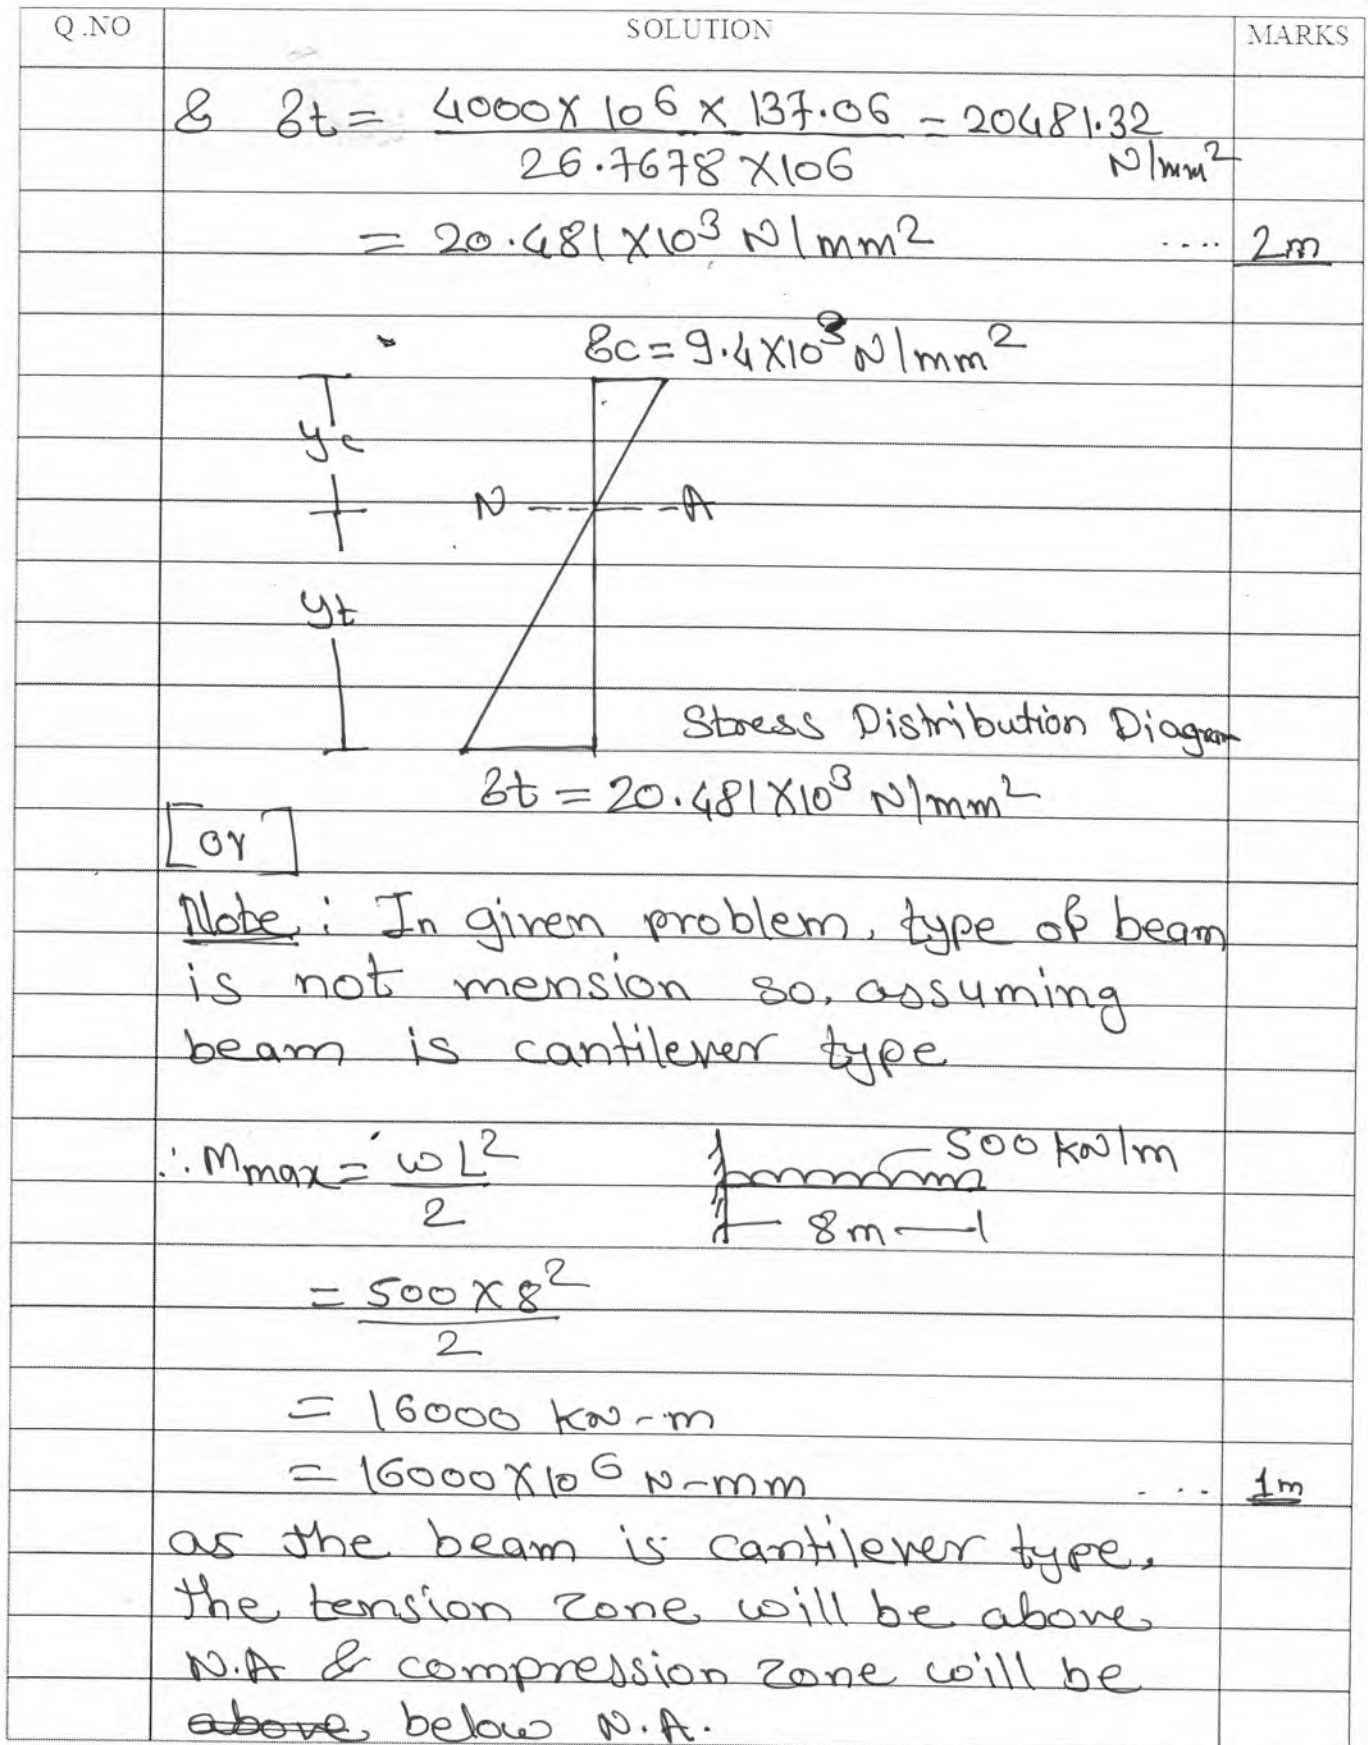 Q.NO SOLUTION MARKS
& σt = 4000 × 10^6 × 137.06 / 26.7678 × 10^6 = 20481.32 N/mm²
= 20.481 × 10³ N/mm² .... 2m
σc = 9.4 × 10³ N/mm²
yc
N A
yt
Stress Distribution Diagram
σt = 20.481 × 10³ N/mm²
or
Note : In given problem, type of beam
is not mension so, assuming
beam is cantilever type
∴ Mmax = ωL² / 2
500 kN/m
8m
= 500 × 8² / 2
= 16000 kN-m
= 16000 × 10^6 N-mm .... 1m
as the beam is cantilever type,
the tension zone will be above
N.A & compression zone will be
above below N.A.